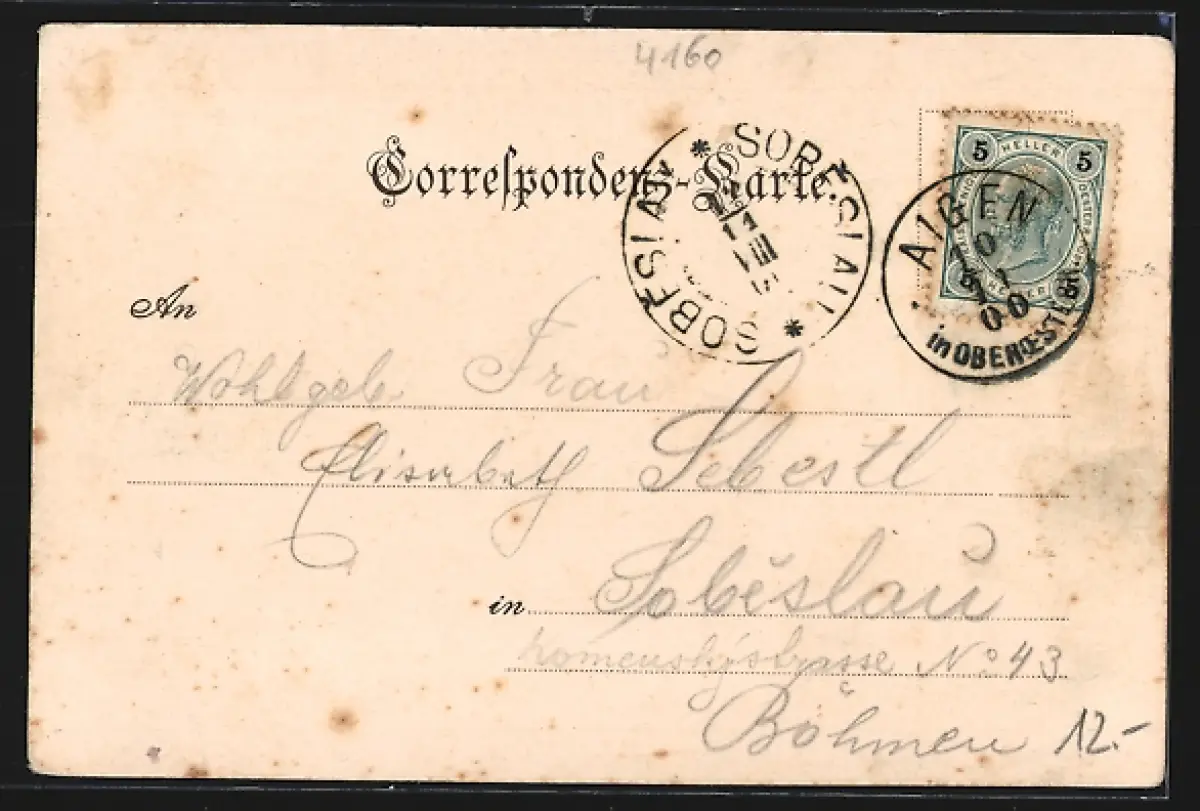 4160
Correspondenz-Karte.
* SOBĚSLAU * SOBĚSLAU
5 HELLER 5
5 HELLER 5
AIGEN
10
11
00
in OBERŒST
An
Wohlgeb. Frau
Elisabeth Sebestl
in Soběslau
Komenskýstrasse No 43
Böhmen
12.-